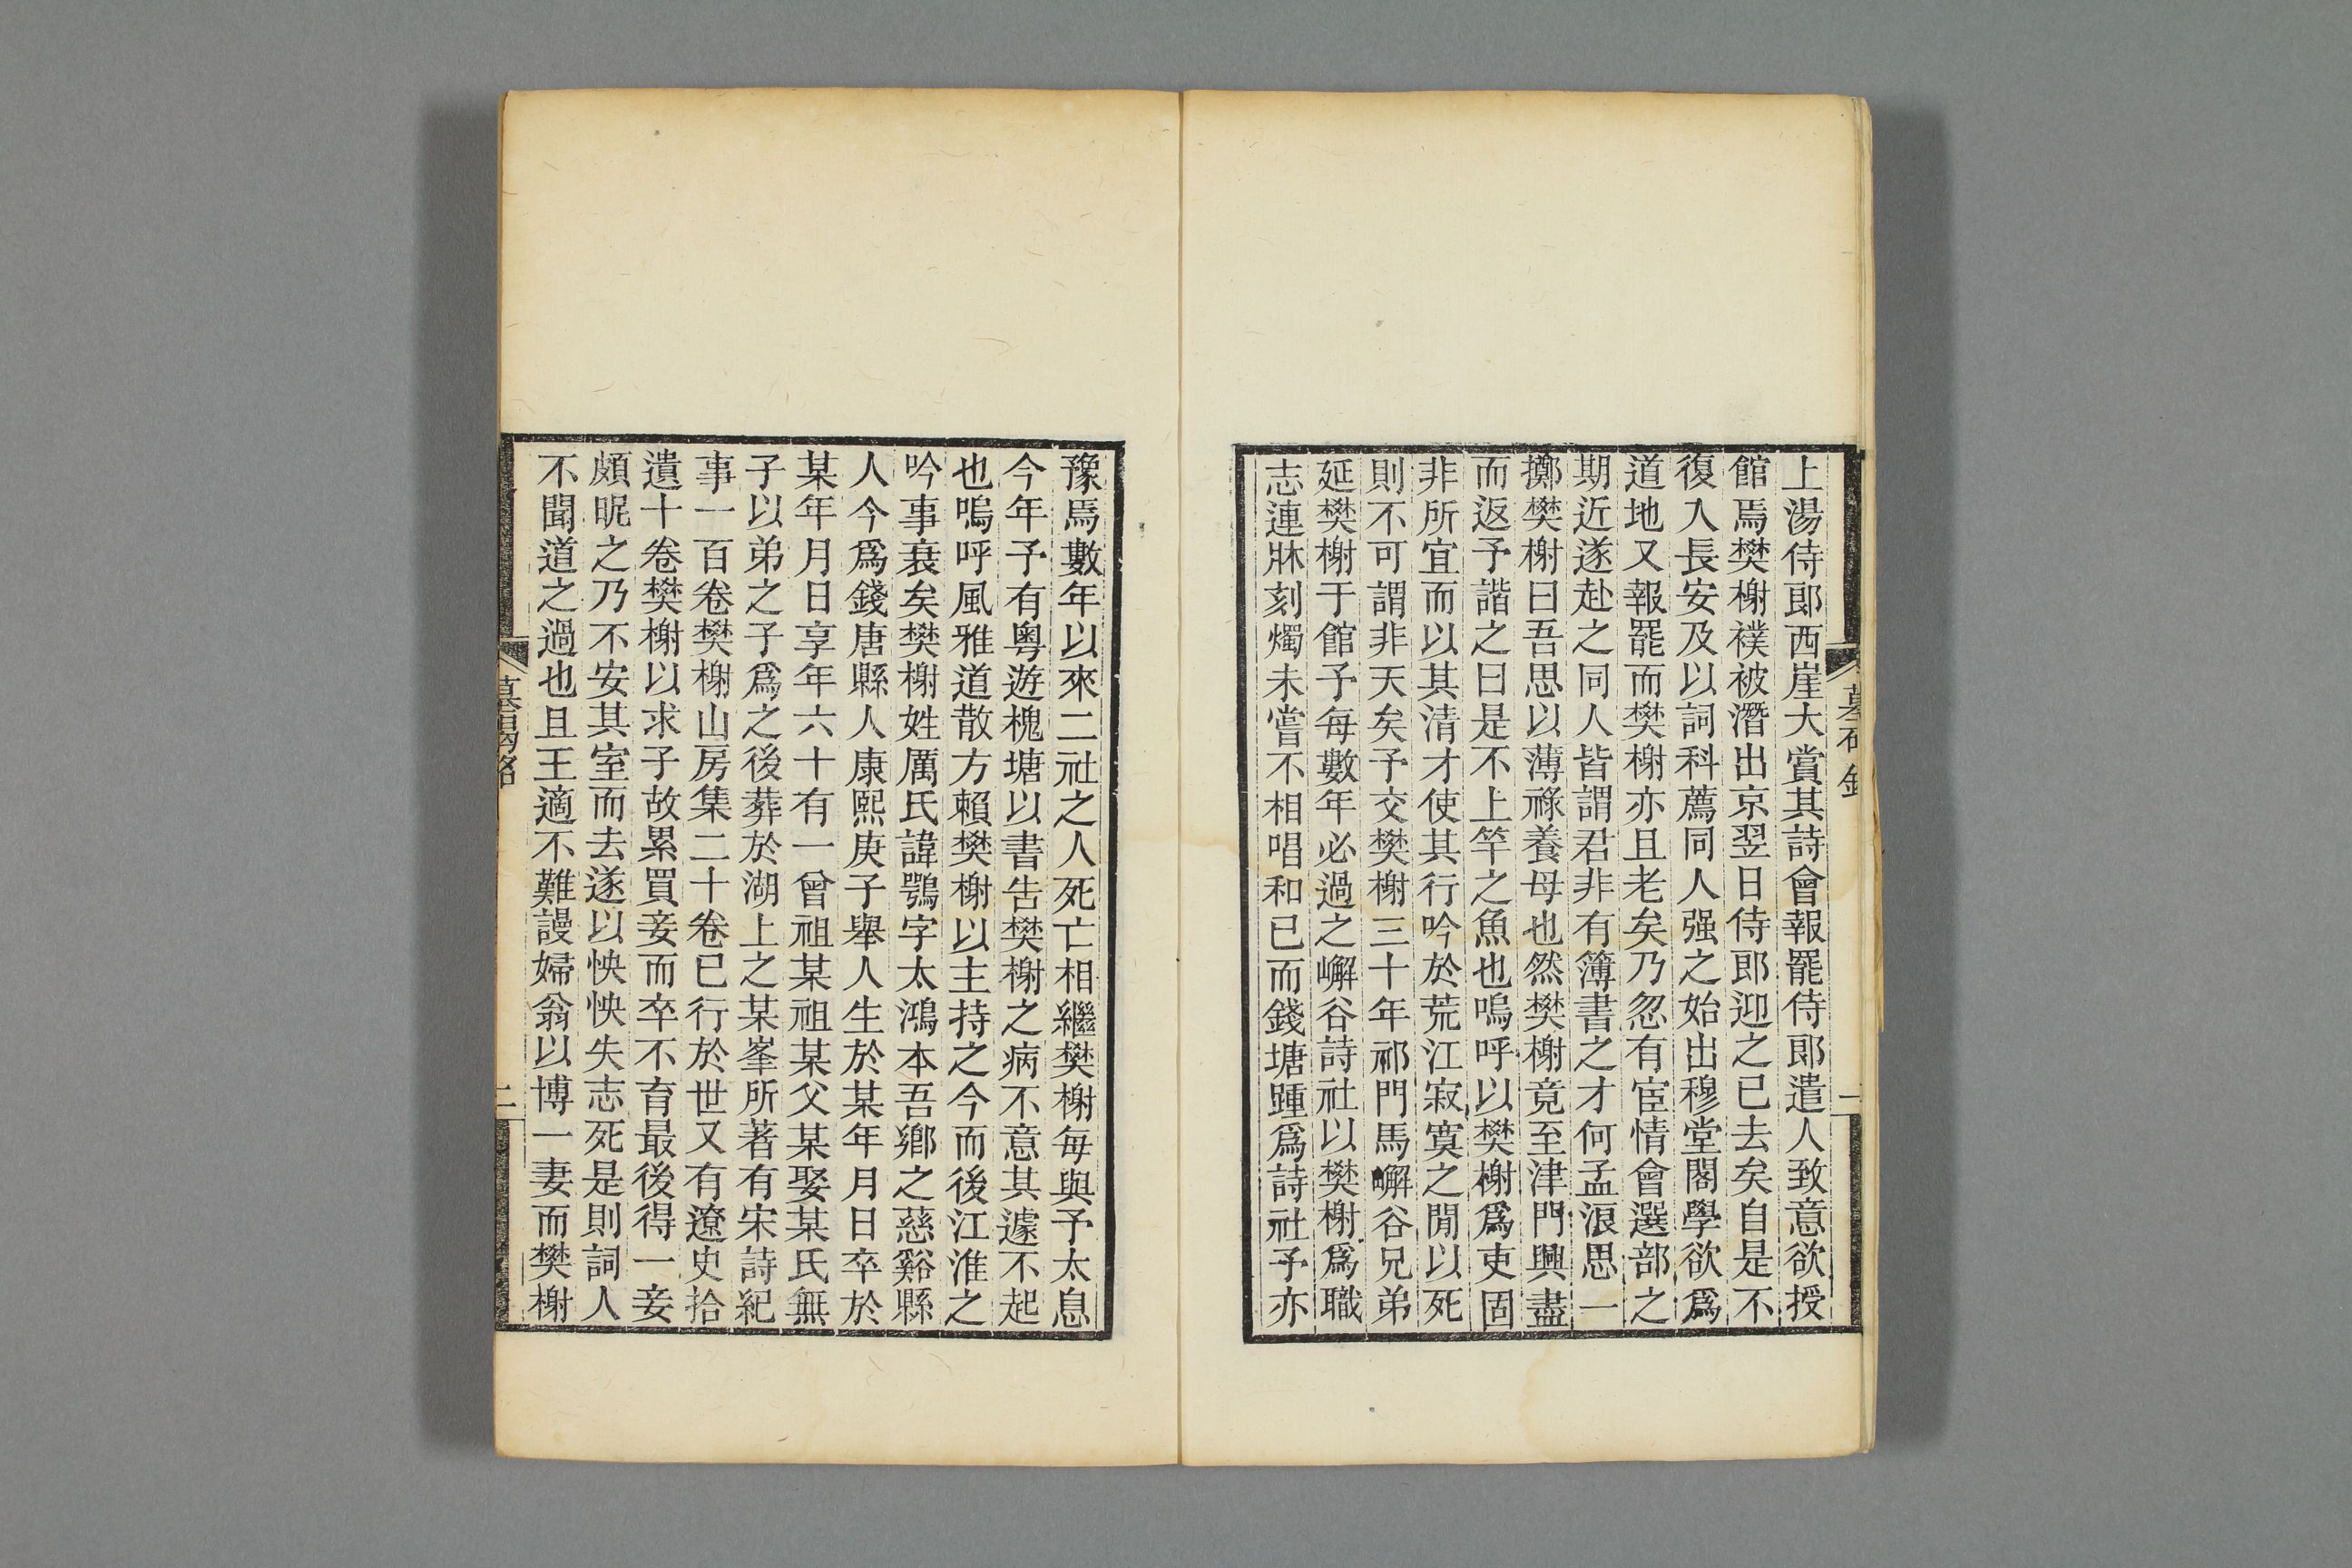 上湯侍郎西崖大賞其詩會報罷侍郎遣人致意欲授
館焉樊榭襆被潛出京翌日侍郎迎之已去矣自是不
復入長安及以詞科薦同人强之始出穆堂閣學欲爲
道地又報罷而樊榭亦且老矣乃忽有宦情會選部之
期近遂赴之同人皆謂君非有簿書之才何孟浪思一
擲樊榭曰吾思以薄祿養母也然樊榭竟至津門興盡
而返予諧之曰是不上竿之魚也嗚呼以樊榭爲吏固
非所宜而以其清才使其行吟於荒江寂寞之閒以死
則不可謂非天矣予交樊榭三十年祁門馬嶰谷兄弟
延樊榭于館予每數年必過之嶰谷詩社以樊榭爲職
志連牀刻燭未嘗不相唱和已而錢塘踵爲詩社予亦
豫焉數年以來二社之人死亡相繼樊榭每與予太息
今年予有粵遊槐塘以書告樊榭之病不意其遽不起
也嗚呼風雅道散方賴樊榭以主持之今而後江淮之
吟事衰矣樊榭姓厲氏諱鶚字太鴻本吾鄉之慈谿縣
人今爲錢唐縣人康熙庚子舉人生於某年月日卒於
某年月日享年六十有一曾祖某祖某父某娶某氏無
子以弟之子爲之後葬於湖上之某峯所著有宋詩紀
事一百卷樊榭山房集二十卷已行於世又有遼史拾
遺十卷樊榭以求子故累買妾而卒不育最後得一妾
頗昵之乃不安其室而去遂以怏怏失志死是則詞人
不聞道之過也且王適不難謾婦翁以博一妻而樊榭
二